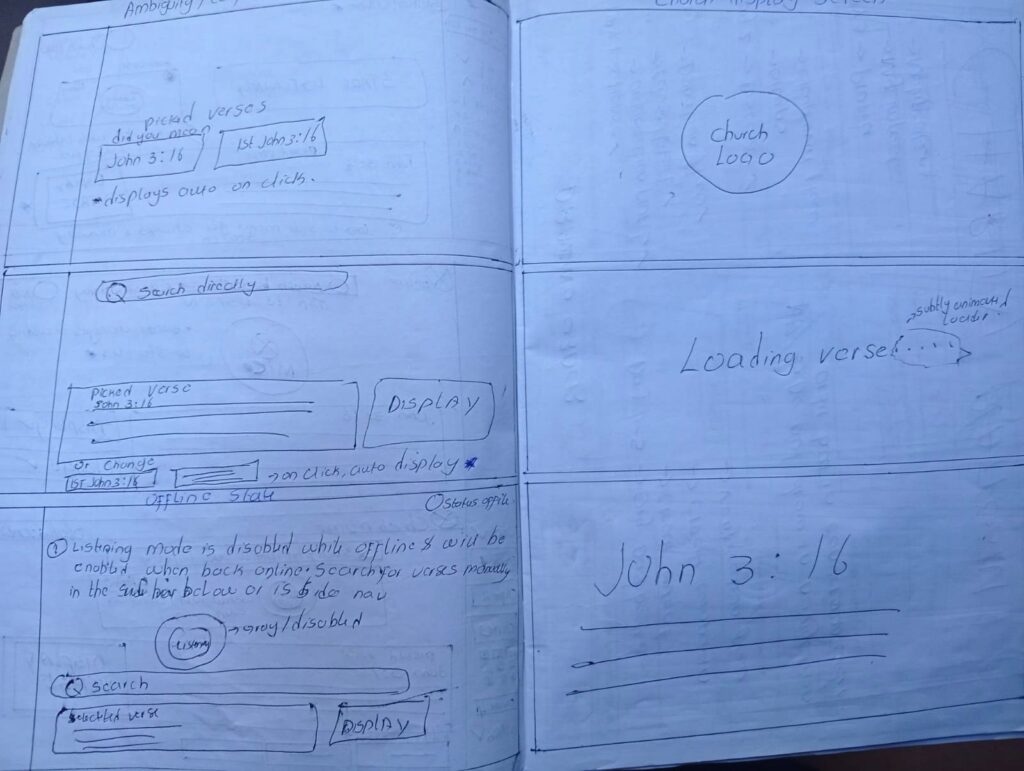 Ambiguity /
picked verses
did you mean
John 3:16
1st John 3:16
*displays auto on click.
Search directly
Picked verse
John 3:16
DISPLAY
Or Change
1st John 3:16
→ on click, auto display *
Offline State
Status offline
① Listening mode is disabled while offline & will be
enabled when back online. Search for verses manually
in the bar below or is side nav
→ gray/disabled
Search
Selected verse
DISPLAY
Church Display Screen
Church
LOGO
subtly animated
Loading verse....
John 3:16